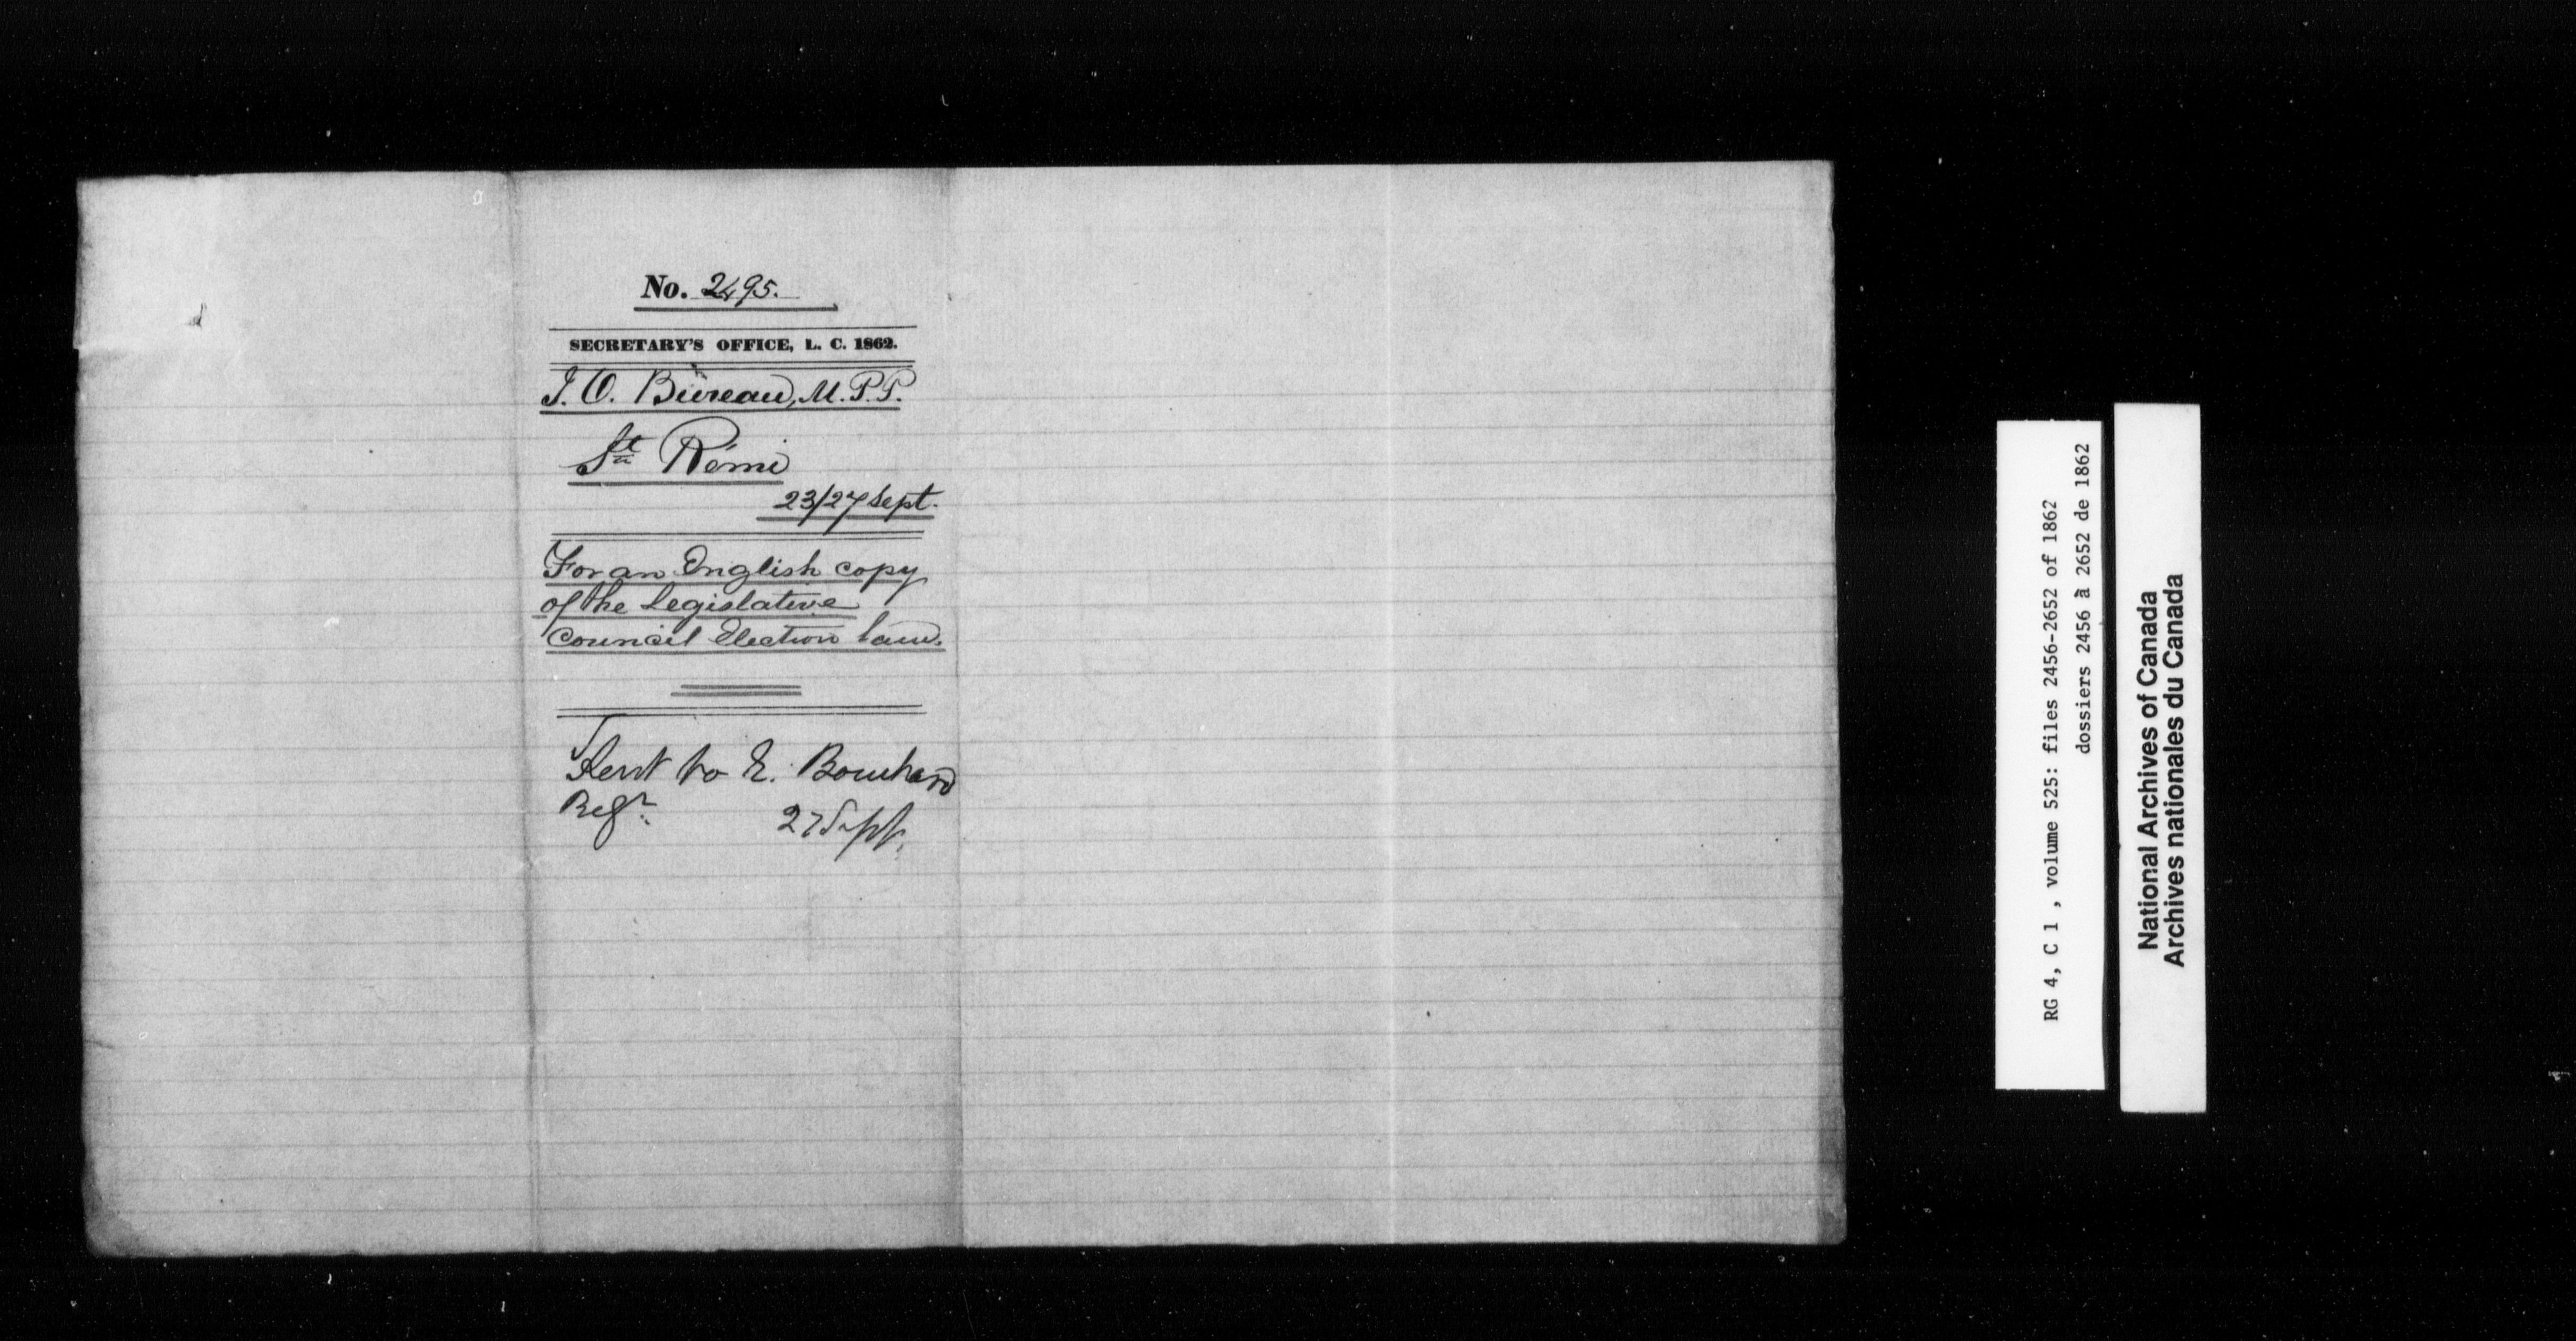 No. 2495.
SECRETARY'S OFFICE, L. C. 1862.
J. O. Bureau, M.P.P.
St Rémi
23/27 Sept.
For an English copy
of the Legislative
Council Election law.
Sent to E. Bouchard
Regr.
27 Sept.
RG 4, C 1 , volume 525: files 2456-2652 of 1862
dossiers 2456 à 2652 de 1862
National Archives of Canada
Archives nationales du Canada